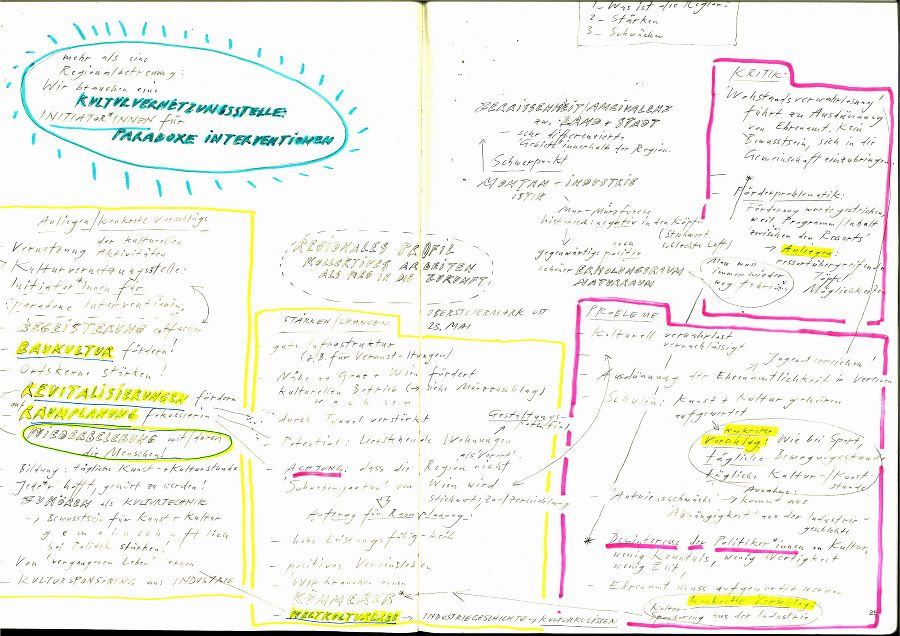 1 – Was ist die Region?
2 – Stärken
3 – Schwächen
mehr als eine
Regionalbetreuung:
Wir brauchen eine
KULTURVERNETZUNGSSTELLE
INITIATOR*INNEN für
PARADOXE INTERVENTIONEN
Anliegen/konkrete Vorschläge
der kulturellen
Vernetzung Aktivitäten
Kulturvernetzungsstelle:
Initiator*innen für
paradoxe Interventionen
BEGEISTERUNG entfachen
BAUKULTUR fördern!
– Ortskerne stärken!
REVITALISIERUNGEN fördern
auf RAUMPLANUNG fokussieren
WIEDERBELEBUNG mit/durch
die Menschen!
Bildung: tägliche Kunst- + Kulturstunde
Jede*r hofft, gehört zu werden!
ZUHÖREN als KULTURTECHNIK
→ Bewusstsein für Kunst + Kultur
gemeinschaftlich
bei Politik stärken!
Von "vergangenem Leben" lernen
– KULTURSPONSORING aus INDUSTRIE
REGIONALES PROFIL
KOLLEKTIVES ARBEITEN
ALS REGION IN DIE ZUKUNFT!
OBERSTEIERMARK OST
23. MAI
STÄRKEN/CHANCEN
gute Infrastruktur
(z.B. für Veranstaltungen)
– Nähe zu Graz + Wien fördert
kulturellen Betrieb (→ siehe Mürzzuschlag)
wachsen
durch Tunnel verstärkt
Gestaltungs-
potential
– Potential: Leerstehende Wohnungen
als Vorort
– ACHTUNG: dass die Region nicht
"Speckgürtel" von Wien wird
Stichwort: Zu-/Zersiedlung
Auftrag für Raumplanung!
– hohe Leistungsfähigkeit
– positives Vereinsleben
Wir brauchen einen
KÜMMERER*
WELTKULTURERBE → INDUSTRIEGESCHICHTE → KULTURKULISSEN
ZERRISSENHEIT/AMBIVALENZ
zw. LAND + STADT
– sehr differenzierte
"Gebiete" innerhalb der Region.
Schwerpunkt
MONTAN – INDUSTRIE
Mur-Mürzfurche
historisch negativ in den Köpfen
(Stichwort:
schlechte Luft)
gegenwärtig noch positiv
schöner ERHOLUNGSRAUM
NATURRAUM
KRITIK:
– Wohlstandsverwahrlosung
führt zu Ausdünnung
von Ehrenamt. Kein
Bewusstsein, sich in die
Gemeinschaft einzubringen.
– Förderproblematik:
Förderung wurde gestrichen,
weil Programm/Inhalt
zwischen den Ressorts!
→ Anliegen:
ressortübergreifende
Möglichkeiten
Man muss
immer wieder
weg fahren
PROBLEME
– Kulturell verwahrlost
vernachlässigt
Jugend erreichen!
– Ausdünnung der Ehrenamtlichkeit in Vereinen
– Schulen: Kunst + Kultur gehören
aufgewertet
konkreter
Vorschlag: Wie bei Sport,
tägliche Bewegungsstunde
tägliche Kultur-/Kunst-
stunde
Annahme:
– "Antriebsschwäche" → kommt aus
"Abhängigkeit" aus der Industrie-
geschichte
* Desinteresse der Politiker*innen an Kultur,
wenig Kenntnis, wenig Wertigkeit
wenig Zeit!
– Ehrenamt muss aufgewertet werden
konkreter Vorschlag:
Kultur-
Sponsoring aus der Industrie